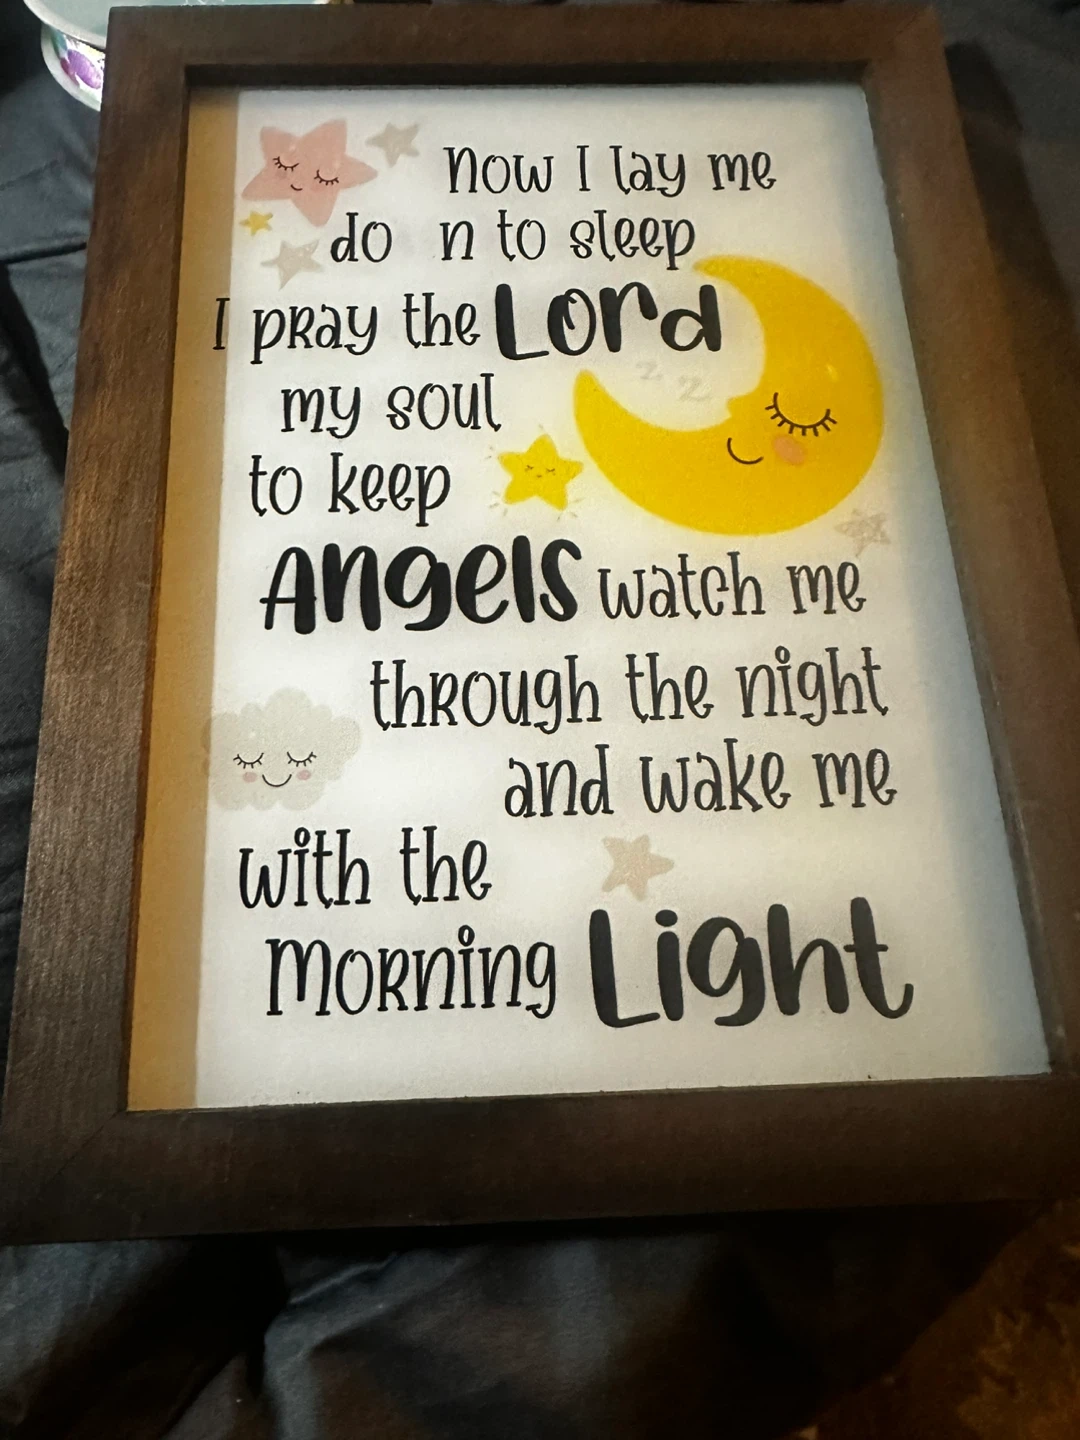 Now I lay me
do n to sleep
I pray the Lord
my soul
z z
to keep
Angels watch me
through the night
and wake me
with the
Morning Light